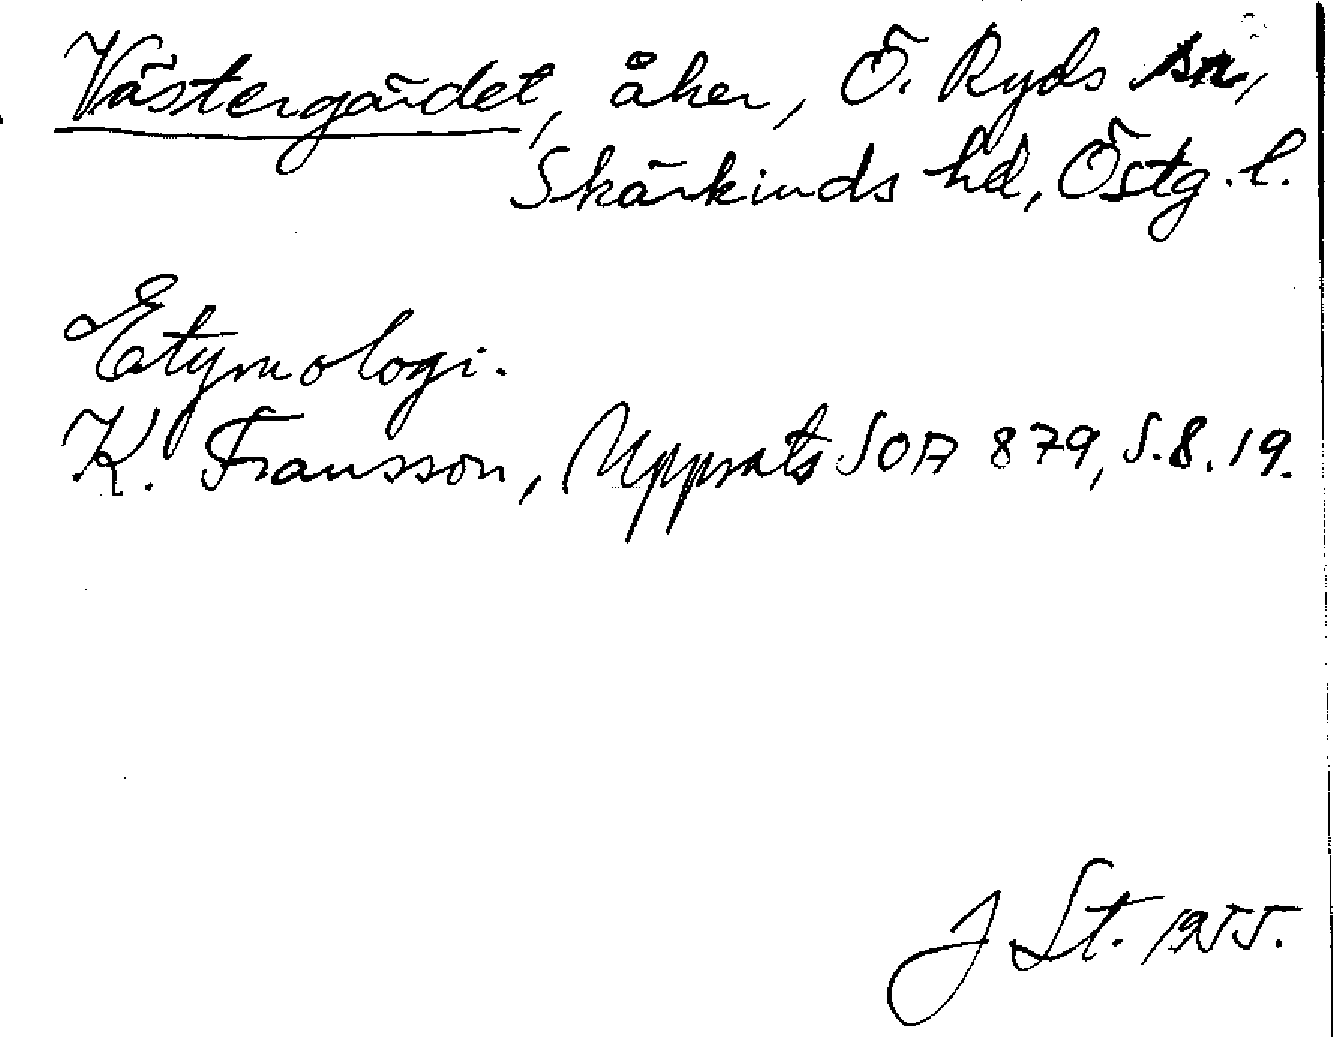 Västergärdet, åker, Ö. Ryds sn,
Skärkinds hd, Östg. l.
Etymologi.
K. Fransson, Uppsats SOA 879, S. 8, 19.
J St. 1955.